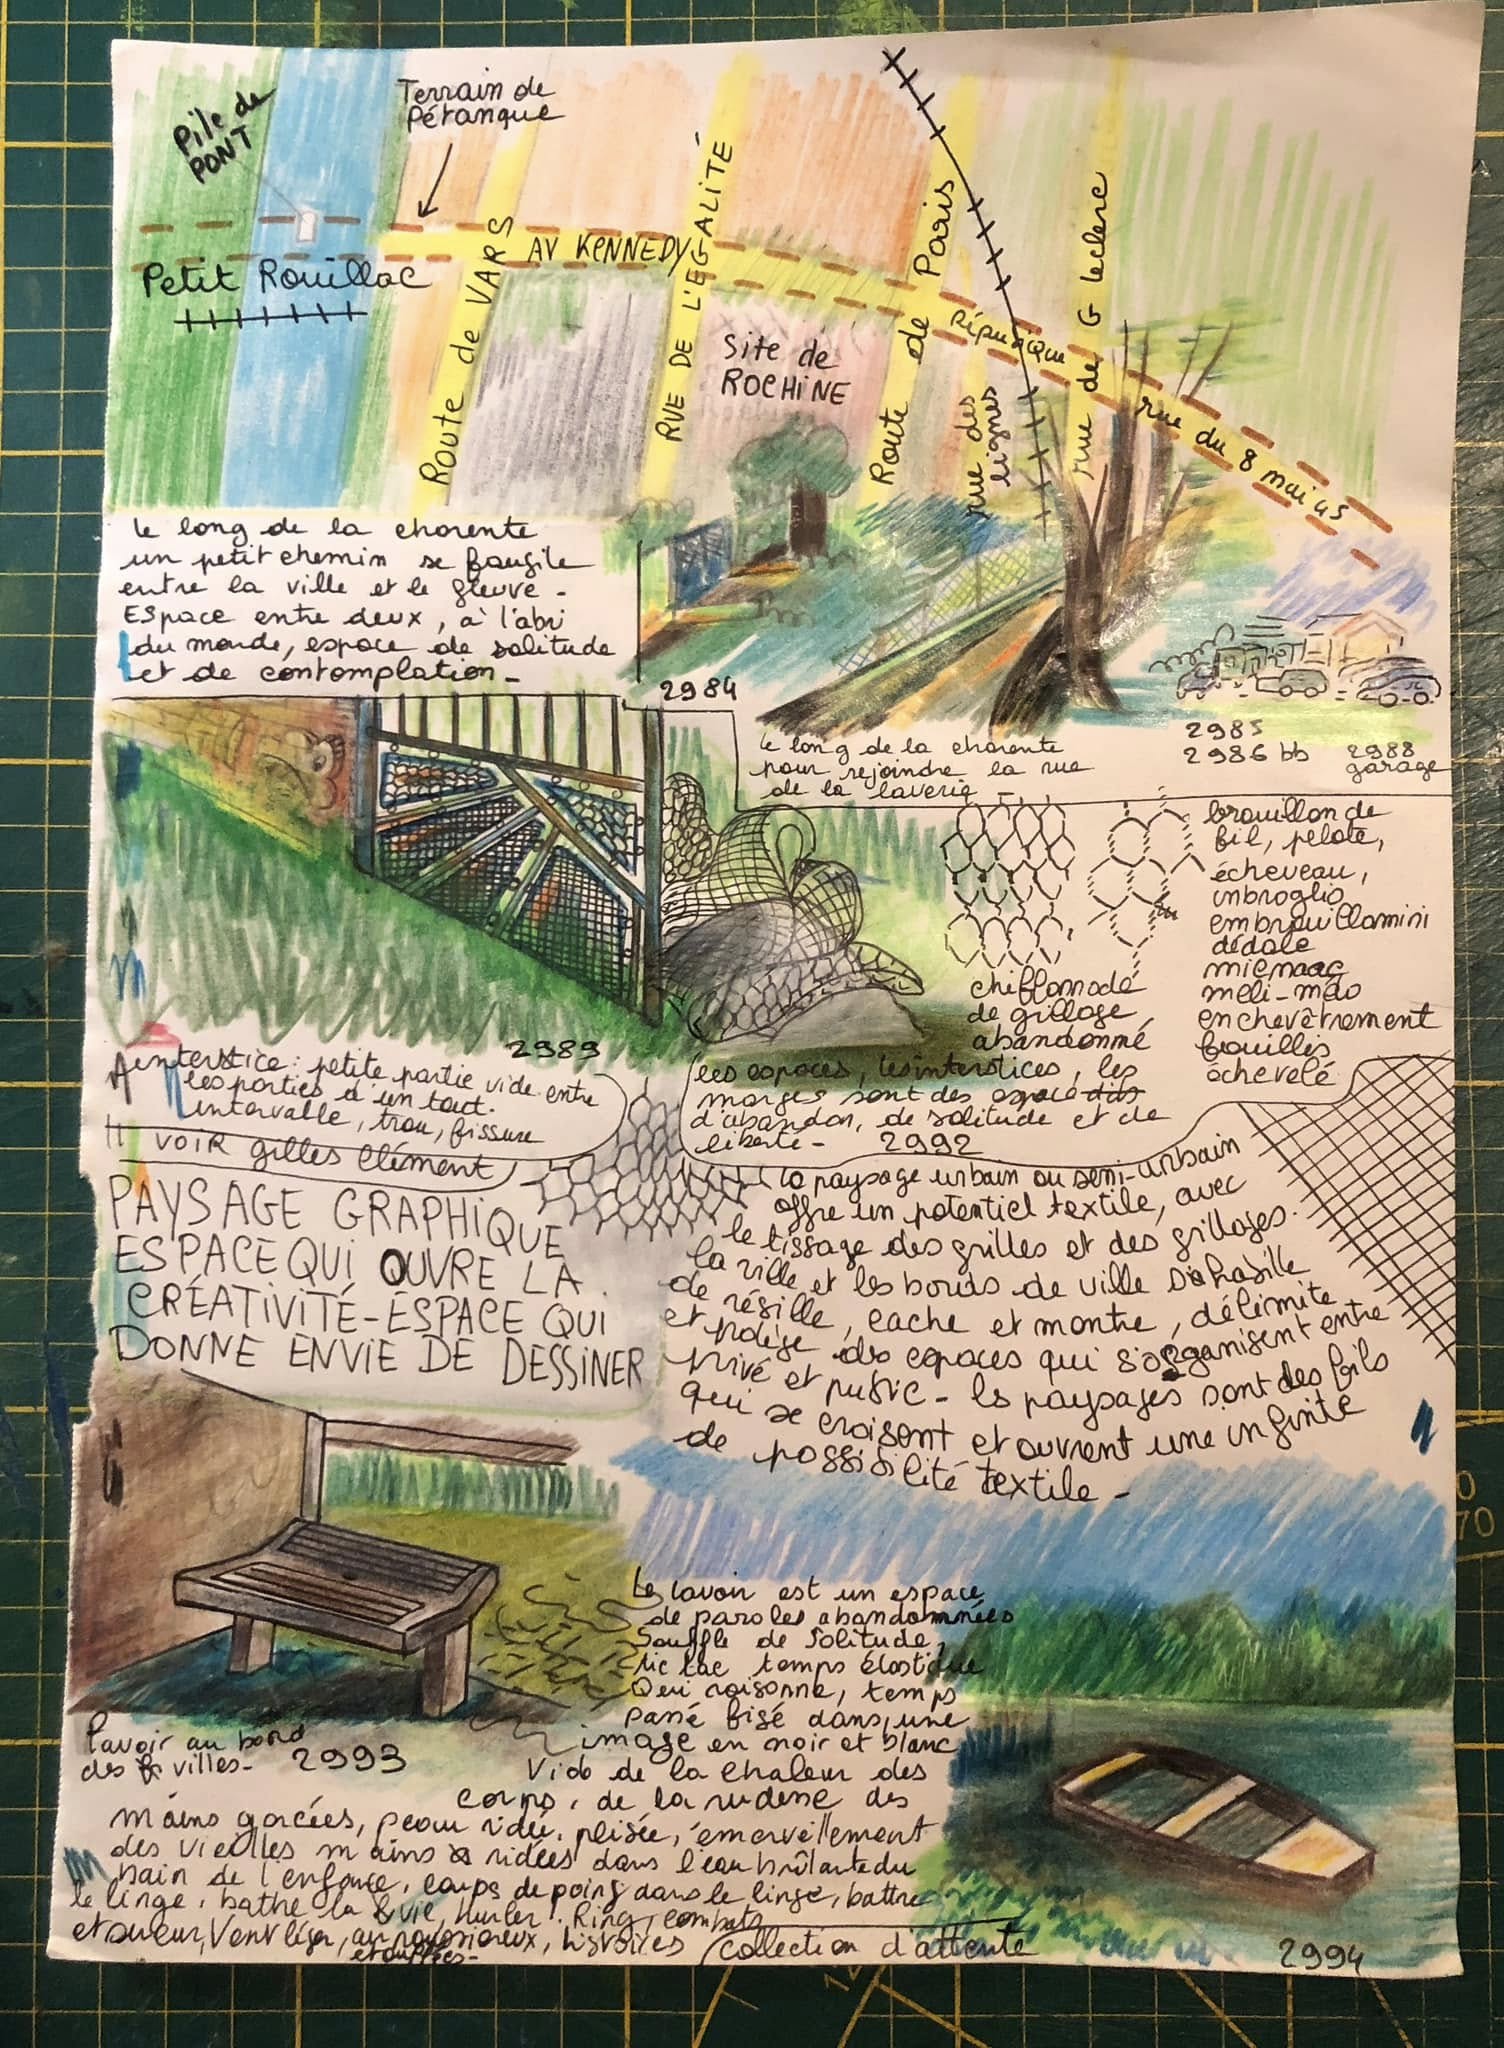 Pile de
PONT
Terrain de
Pétanque
Petit Rouillac
AV KENNEDY
Route de VARS
RUE DE L'EGALITÉ
Site de
ROCHINE
Route de Paris
rue des
lignes
rue de G leclerc
République
rue du 8 mai 45
le long de la charente
un petit chemin se faufile
entre la ville et le fleuve -
ESpace entre deux, à l'abri
du monde, espace de solitude
et de contemplation -
2984
le long de la charente
pour rejoindre la rue
de la laverie -
2985
2986 bb
2988
garage
brouillon de
fil, pelote,
écheveau,
inbroglio
embrouillamini
dédale
micmac
meli-mélo
enchevêtrement
fouillis
échevelé
chiffonnade
de grillage
abandonné
2989
interstice : petite partie vide entre
les parties d'un tout.
intervalle, trou, fissure
VOIR gilles Clément
les espaces, les interstices, les
marges sont des espace
d'abandon, de solitude et de
liberté - 2992
PAYSAGE GRAPHIQUE
ESPACE QUI OUVRE LA
CRÉATIVITÉ - ESPACE QUI
DONNE ENVIE DE DESSINER
le paysage urbain ou semi-urbain
offre un potentiel textile, avec
le tissage des grilles et des grillages.
la ville et les bords de ville s'habille
de résille, cache et montre, délimite
et protège des espaces qui s'organisent entre
privé et public - les paysages sont des fils
qui se croisent et ouvrent une infinité
de possibilité textile -
Le lavoir est un espace
de paroles abandonnées
Souffle de Solitude,
tic tac temps élastique
Qui raisonne, temps
passé figé dans une
image en noir et blanc
Vide de la chaleur des
corps, de la rudesse des
mains gercées, peau ridée, plissée, émerveillement
des vieilles mains ridées dans l'eau brûlante du
bain de l'enfance, coups de poing dans le linge, battre
le linge, battre la vie, hurler ! Ring, combats
et sueur, Vent léger, air, histoires
étouffées -
lavoir au bord
des villes - 2993
collection d'attente
2994